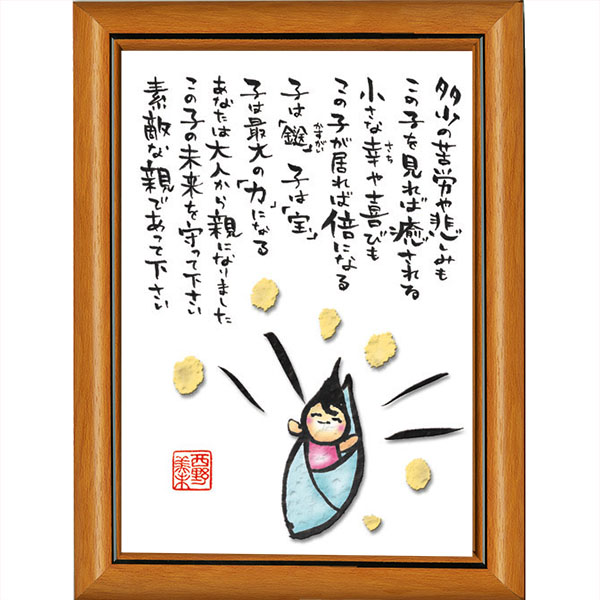 多少の苦労や悲しみも
この子を見れば癒される
小さな幸や喜びも
さち
この子が居れば倍になる
子は「鎹」子は「宝」
かすがい
子は最大の「力」になる
あなたは大人から親になりました
この子の未来を守って下さい
素敵な親であって下さい
西野